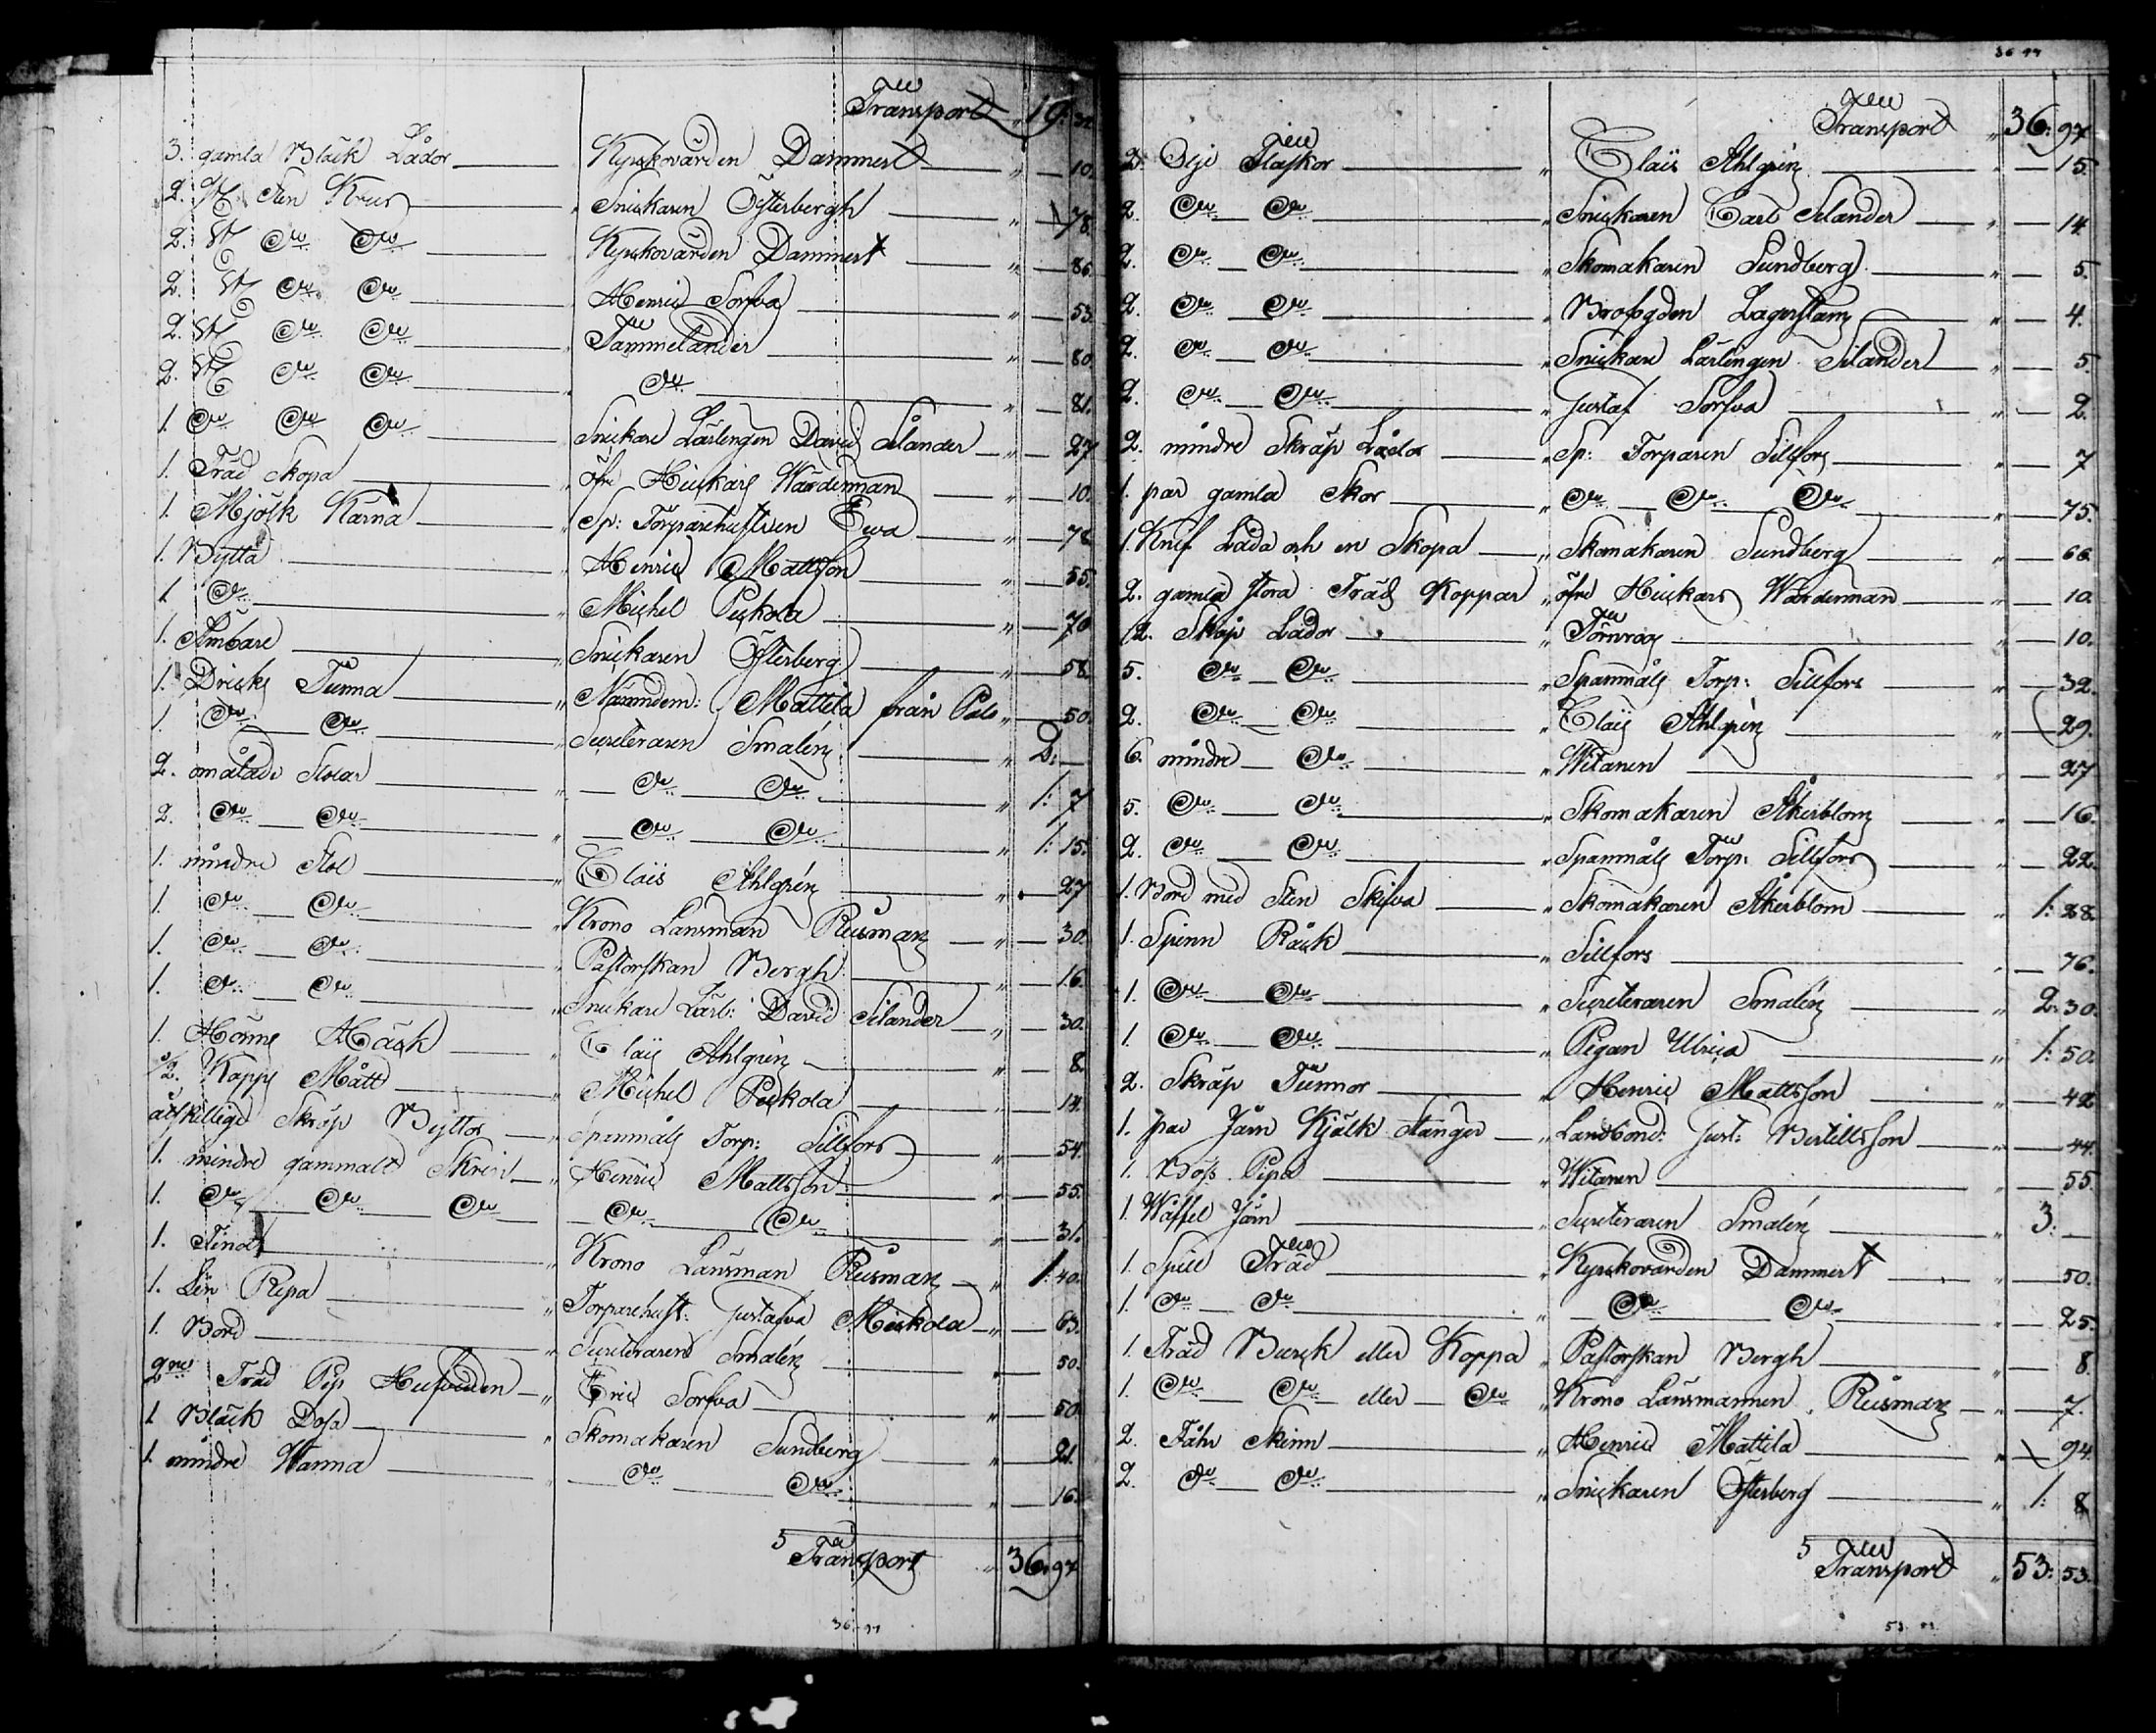 Transport 19: 32
3. gamla Bläck Lådor Kyrkovärden Dammert 10.
2. St Sten Krus Snickaren Österbergh 78.
2. St Do Do Kyrkovärden Dammert 86.
2. St Do Do Henric Sorfva 53.
2. St Do Do Tammelander 80
2. St Do Do Do 81.
1. Do Do Do Snickare Lärlingen David Silander 27
1. Träd Skopa öfre Wärderman 10.
1. Mjölk Kärna Sp: Torparehustrun Ewa 78
1. Bytta Henric Mattsson 55.
1 Do Michel Peckola 70
1. Ämbare Snickaren Österberg 58.
1. Dricks Tunna Nämndem: Mattila från Palo 50.
1. Do Do Smalén 2:
2. omålade Stolar Do Do 1: 7
2. Do Do Do Do 1: 15.
1. mindre Stol Claës Ahlgrén 27
1. Do Do Krono Länsman Reusman 30.
1. Do Do Pastorskan Bergh 16.
1. Do Do Snickare Lärl: David Silander 30.
1. Häck Claës Ahlgrén 8.
1/2. Kapp Mått Michel Peckola 14.
åtskillige Skräp Byttor Spanmåls Torp: Sillfors 54.
1. mindre gammalt Skrin Henric Mattsson 55.
1. Do Do Do Do Do 31.
1. Krono Länsman Reusman 1: 40.
1. Lin Repa Torparehust: Gustafva 63.
1. Bord Smalén 50.
2ne Träd Eric Sorfva 50.
1 Bläck Dosa Skomakaren Sundberg 21.
1. mindre Wanna Do Do 16.
5 Transport 36: 97
36.-97
36 97
Transport 36: 97.
2. Olje Flaskor Claës Ahlgrén 15.
2. Do Do Snickaren Carl Silander 14
2. Do Do Skomakaren Sundberg 5.
2. Do Do Brofogden Lagerstam 4.
2. Do Do Snickare Lärlingen Silander 5.
2. Do Do Gustaf Sorfva 2.
2. mindre Skräp Lådor Sp: Torparen Sillfors 7
1. par gamla Skor Do Do Do 75.
1. Knif Låda och en Skopa Skomakaren Sundberg 66.
2. gamla stora Träd Koppar öfre Wärderman 10.
12. Skåp Lådor Törnroos 10.
5. Do Do Spanmåls Torp: Sillfors 32.
2. Do Do Claës Ahlgrén 29.
6. mindre Do Witanen 27
5. Do Do Skomakaren Åkerblom 16.
2. Do Do Spanmåls Torp: Sillfors 22.
1. Bord med Sten Skifva Skomakaren Åkerblom 1: 28.
1. Spinn Råck Sillfors 76.
1. Do Do Smalén 2: 30.
1. Do Do Pigan Ulrica 1: 50.
2. Skräp Tunnor Henric Mattsson 42
1. par Järn Kjälk Stänger Landbond: Gust: Bertillsson 44.
1. Böss Pipa Witanen 55.
1. Wåffel Järn Smalén 3:
1. Träd Kyrkovärden Dammert 50.
1. Do Do Do Do 25.
1. Träd eller Koppa Pastorskan Bergh 8.
1. Do Do eller Do Krono Länsmannen Reusman 7.
2. Fåhr Skinn Henric Mattila 94.
2. Do Do Snickaren Österberg 1: 8
5 Transport 53: 53.